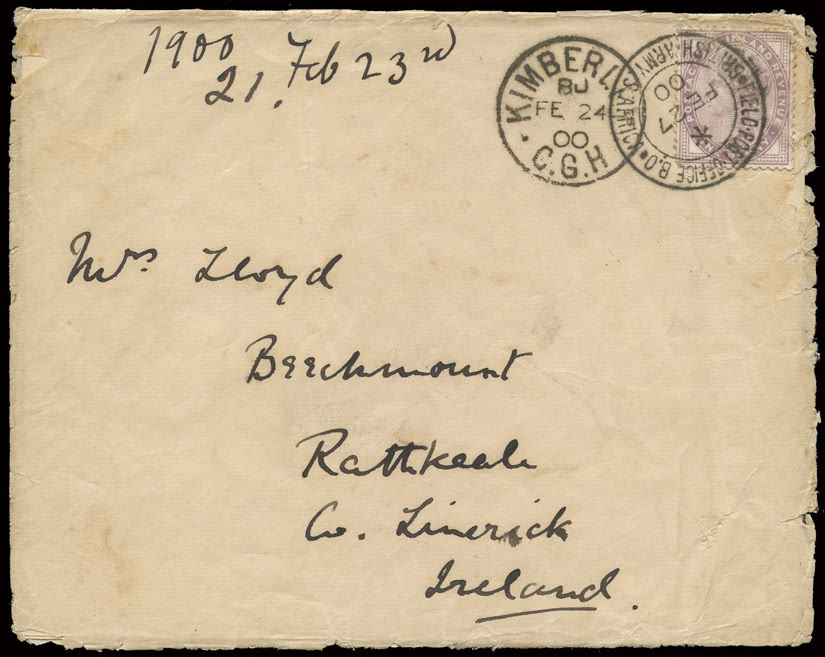 1900
21. Feb 23rd
KIMBERL
8U
FE 24
00
C.G.H
BRITISH ARMY S. AFRICA FIELD POST OFFICE B.O.
FE
00
AND REVENUE
Mrs Lloyd
Beechmount
Rathkeale
Co. Limerick
Ireland.